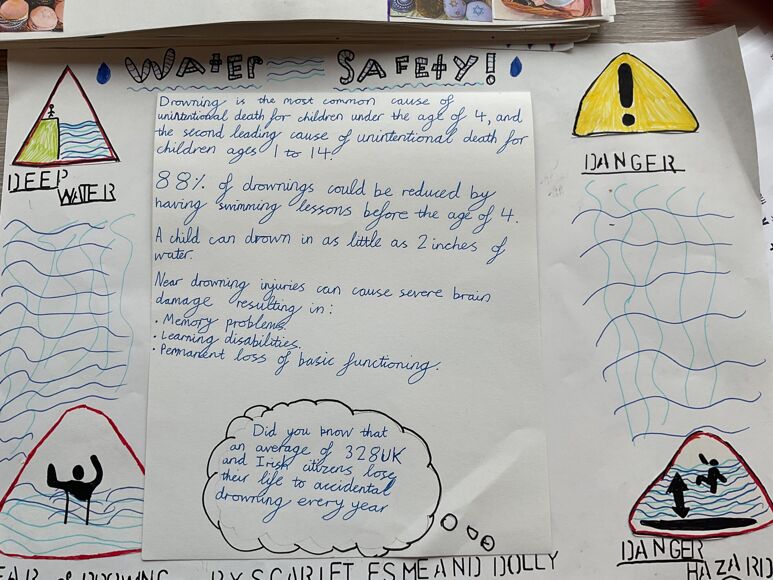 WATER SAFETY!
DEEP
WATER
Drowning is the most common cause of
unintentional death for children under the age of 4, and
the second leading cause of unintentional death for
children ages 1 to 14.
88% of drownings could be reduced by
having swimming lessons before the age of 4.
A child can drown in as little as 2 inches of
water.
Near drowning injuries can cause severe brain
damage resulting in:
• Memory problems.
• Learning disabilities.
• Permanent loss of basic functioning.
Did you know that
an average of 328 UK
and Irish citizens lose
their life to accidental
drowning every year
!
DANGER
DANGER
HAZARD
BY SCARLET, ESME AND DOLLY